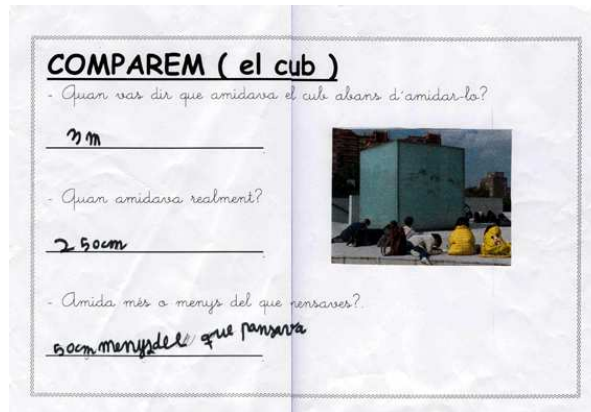 COMPAREM ( el cub )
- Quan vas dir que amidava el cub abans d'amidar-lo?
3 m
- Quan amidava realment?
250cm
- Amida més o menys del que pensaves?.
50cm menys del que pansava